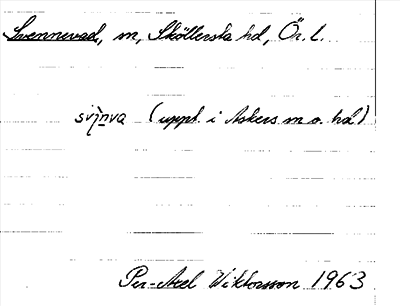 Svennevad, sn, Sköllersta hd, Ör. l.
(uppt. i Askers sn o. hd)
Per-Axel Wiktorsson 1963